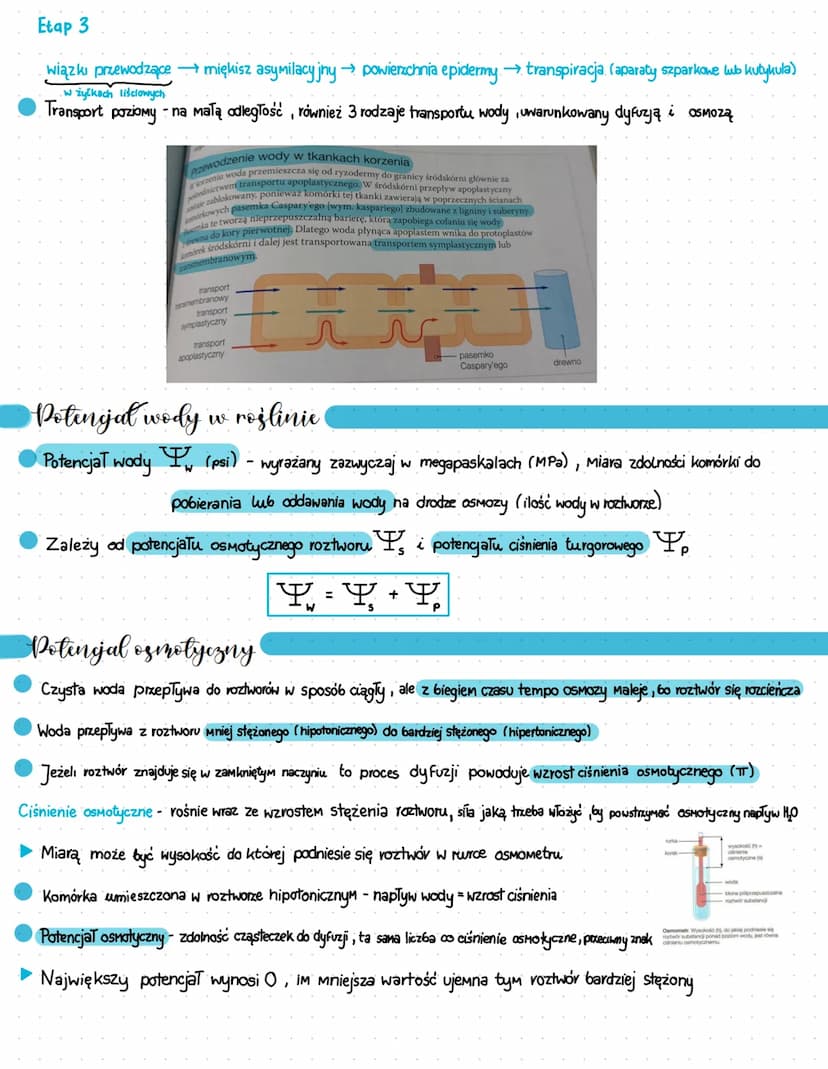 Etap 3
wiązki przewodzące → miękisz asymilacyjny → powierzchnia epidermy → transpiracja (aparaty szparkowe lub kutykula)
w żyłkach liściowych
Transport poziomy - na małą odległość, również 3 rodzaje transportu wody, uwarunkowany dyfuzją i osmozą
Przewodzenie wody w tkankach korzenia
W korzeniu woda przemieszcza się od ryzodermy do granicy śródskórni głównie za
pośrednictwem transportu apoplastycznego. W śródskórni przepływ apoplastyczny
zostaje zablokowany, ponieważ komórki tej tkanki zawierają w poprzecznych ścianach
komórkowych pasemka Caspary'ego [wym. kaspariego] zbudowane z ligniny i suberyny.
Pasemka te tworzą nieprzepuszczalną barierę, która zapobiega cofaniu się wody
z drewna do kory pierwotnej. Dlatego woda płynąca apoplastem wnika do protoplastów
komórek śródskórni i dalej jest transportowana transportem symplastycznym lub
transmembranowym.
transport
transmembranowy
transport
symplastyczny
transport
apoplastyczny
pasemko
Caspary'ego
drewno
Potencjał wody w roślinie
Potencjał wody Ψw (psi) - wyrażany zazwyczaj w megapaskalach (MPa), miara zdolności komórki do
pobierania lub oddawania wody na drodze osmozy (ilość wody w roztworze)
Zależy od potencjału osmotycznego roztworu Ψs i potencjału ciśnienia turgorowego Ψp
Ψw = Ψs + Ψp
Potencjał osmotyczny
Czysta woda przepływa do roztworów w sposób ciągły, ale z biegiem czasu tempo osmozy maleje, bo roztwór się rozcieńcza
Woda przepływa z roztworu mniej stężonego (hipotonicznego) do bardziej stężonego (hipertonicznego)
Jeżeli roztwór znajduje się w zamkniętym naczyniu to proces dyfuzji powoduje wzrost ciśnienia osmotycznego (π)
Ciśnienie osmotyczne - rośnie wraz ze wzrostem stężenia roztworu, siła jaką trzeba włożyć, by powstrzymać osmotyczny napływ H₂O
Miarą może być wysokość do której podniesie się roztwór w rurce osmometru
rurka
korek
wysokość (h) =
ciśnienie
osmotyczne (π)
woda
błona półprzepuszczalna
roztwór substancji
Komórka umieszczona w roztworze hipotonicznym - napływ wody = wzrost ciśnienia
Potencjał osmotyczny - zdolność cząsteczek do dyfuzji, ta sama liczba co ciśnienie osmotyczne, przeciwny znak
Osmometr. Wysokość (h), do jakiej podniesie się
roztwór substancji ponad poziom wody, jest równa
ciśnieniu osmotycznemu.
Największy potencjał wynosi 0, im mniejsza wartość ujemna tym roztwór bardziej stężony